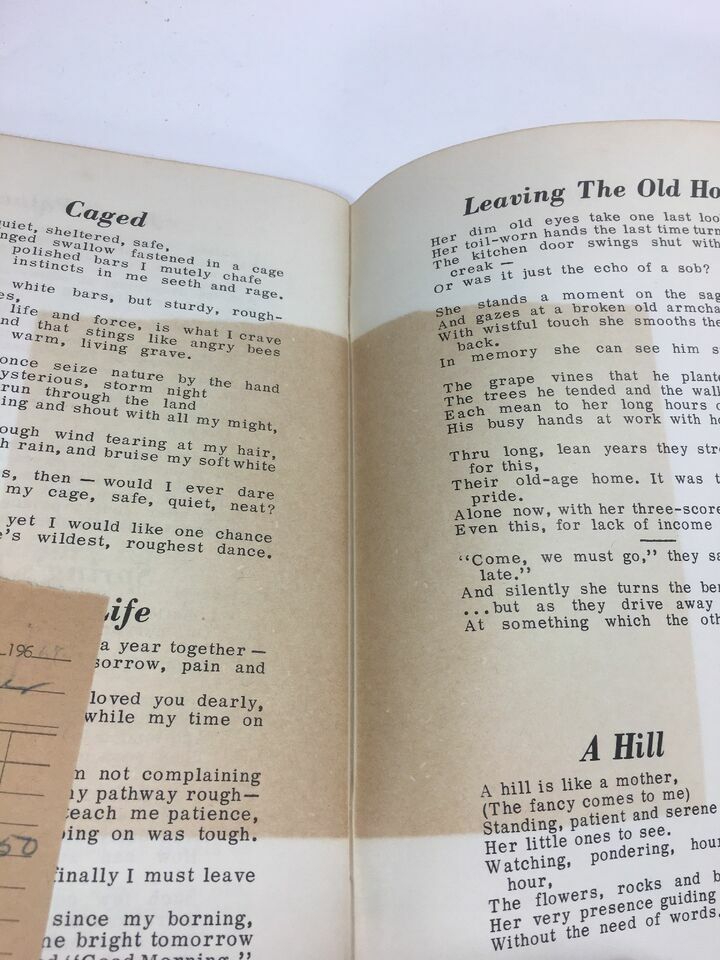 Caged
uiet, sheltered, safe,
nged swallow fastened in a cage
polished bars I mutely chafe
instincts in me seeth and rage.
white bars, but sturdy, rough-
es,
life and force, is what I crave
nd that stings like angry bees
warm, living grave.
once seize nature by the hand
ysterious, storm night
run through the land
ing and shout with all my might,
ough wind tearing at my hair,
h rain, and bruise my soft white
s, then — would I ever dare
my cage, safe, quiet, neat?
yet I would like one chance
e's wildest, roughest dance.
Life
a year together —
sorrow, pain and
loved you dearly,
while my time on
m not complaining
ny pathway rough—
teach me patience,
ping on was tough.
finally I must leave
since my borning,
ne bright tomorrow
d "Good Morning."
196
50
Leaving The Old Ho
Her dim old eyes take one last loo
Her toil-worn hands the last time turn
The kitchen door swings shut with
creak —
Or was it just the echo of a sob?
She stands a moment on the sag
And gazes at a broken old armcha
With wistful touch she smooths the
back.
In memory she can see him s
The grape vines that he plante
The trees he tended and the wall
Each mean to her long hours o
His busy hands at work with ho
Thru long, lean years they stre
for this,
Their old-age home. It was t
pride.
Alone now, with her three-score
Even this, for lack of income
"Come, we must go," they sa
late."
And silently she turns the ben
...but as they drive away
At something which the oth
A Hill
A hill is like a mother,
(The fancy comes to me)
Standing, patient and serene
Her little ones to see.
Watching, pondering, hour
hour,
The flowers, rocks and b
Her very presence guiding
Without the need of words.